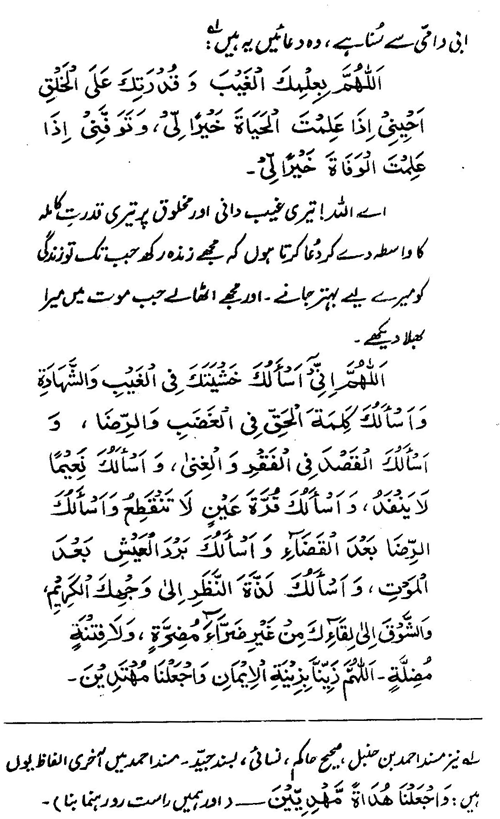 ابی و امّی سے سُنا ہے، وہ دعائیں یہ ہیں لہ:
اَللّٰهُمَّ بِعِلْمِكَ الْغَيْبَ وَ قُدْرَتِكَ عَلَى الْخَلْقِ
اَحْيِنِيْ اِذَا عَلِمْتَ الْحَيَاةَ خَيْرًا لِّيْ، وَتَوَفَّنِيْ اِذَا
عَلِمْتَ الْوَفَاةَ خَيْرًا لِّيْ۔
اے اللہ! تیری غیب دانی اور مخلوق پر تیری قدرتِ کاملہ
کا واسطہ دے کر دُعا کرتا ہوں کہ مجھے زندہ رکھ جب تک تو زندگی
کو میرے لیے بہتر جانے۔ اور مجھے اٹھالے جب موت میں میرا
بھلا دیکھے۔
اَللّٰهُمَّ اِنِّيْ اَسْأَلُكَ خَشْيَتَكَ فِي الْغَيْبِ وَالشَّهَادَةِ
وَاَسْأَلُكَ كَلِمَةَ الْحَقِّ فِي الْغَضَبِ وَالرِّضَا، وَ
اَسْأَلُكَ الْقَصْدَ فِي الْفَقْرِ وَالْغِنٰى، وَاَسْأَلُكَ نَعِيْمًا
لَا يَنْفَدُ، وَاَسْأَلُكَ قُرَّةَ عَيْنٍ لَا تَنْقَطِعُ وَاَسْأَلُكَ
الرِّضَا بَعْدَ الْقَضَاءِ وَاَسْأَلُكَ بَرْدَ الْعَيْشِ بَعْدَ
الْمَوْتِ، وَاَسْأَلُكَ لَذَّةَ النَّظَرِ اِلٰى وَجْهِكَ الْكَرِيْمِ،
وَالشَّوْقَ اِلٰى لِقَاءِكَ مِنْ غَيْرِ ضَرَّاءَ مُضِرَّةٍ، وَلَا فِتْنَةٍ
مُضِلَّةٍ۔ اَللّٰهُمَّ زَيِّنَّا بِزِيْنَةِ الْاِيْمَانِ وَاجْعَلْنَا مُهْتَدِيْنَ۔
لہ نیز مسند احمد بن حنبل، صحیح حاکم، نسائی، بسند جیّد۔ مسند احمد میں آخری الفاظ یوں
ہیں: وَاجْعَلْنَا هُدَاةً مَّهْدِيِّيْنَ ــــ (اور ہمیں راست رو رہنما بنا)۔